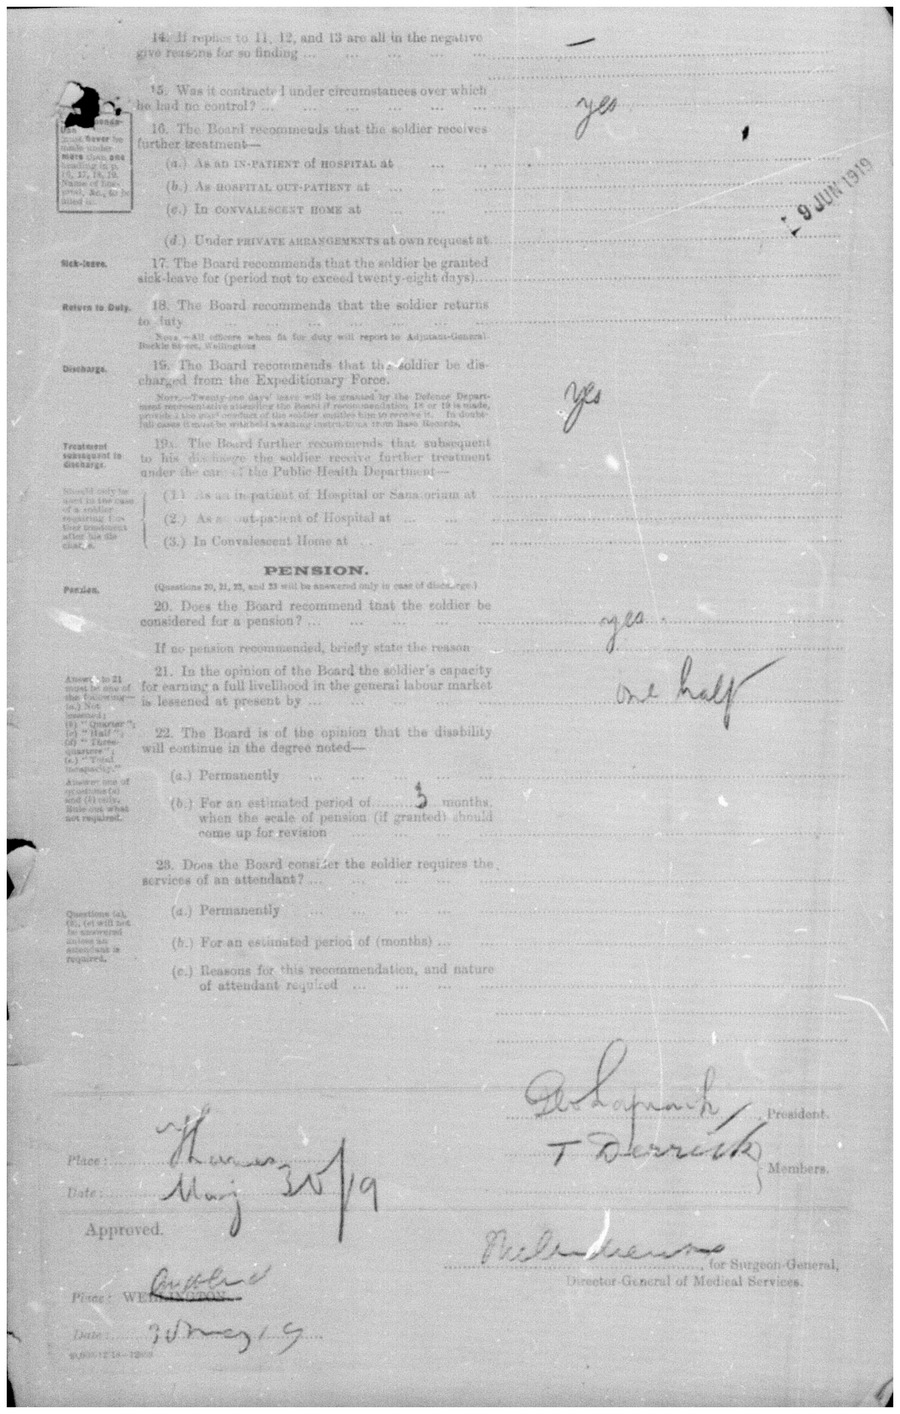 14. If replies to 11, 12, and 13 are all in the negative
give reasons for so finding ... ... ... ... ... —
15. Was it contracted under circumstances over which
he had no control? ... ... ... ... ... yes
must never be
made under
more than one
heading in p.
16, 17, 18, 19.
Name of hos-
pital, &c., to be
filled in.
16. The Board recommends that the soldier receives
further treatment—
(a.) As an IN-PATIENT of HOSPITAL at ... ...
(b.) As HOSPITAL OUT-PATIENT at ... ...
(c.) In CONVALESCENT HOME at ... ...
9 JUN 1919
(d.) Under PRIVATE ARRANGEMENTS at own request at
Sick-leave.
17. The Board recommends that the soldier be granted
sick-leave for (period not to exceed twenty-eight days)
Return to Duty.
18. The Board recommends that the soldier returns
to duty ... ... ... ... ... ...
NOTE.—All officers when fit for duty will report to Adjutant-General
Buckle Street, Wellington
Discharge.
19. The Board recommends that the soldier be dis-
charged from the Expeditionary Force. Yes
NOTE.—Twenty-one days' leave will be granted by the Defence Depart-
ment representative attending the Board if recommendation 18 or 19 is made,
provided the past conduct of the soldier entitles him to receive it. In doubt-
full cases it must be withheld awaiting instructions from Base Records.
Treatment
subsequent to
discharge.
19A. The Board further recommends that subsequent
to his discharge the soldier receive further treatment
under the care of the Public Health Department—
Should only be
used in the case
of a soldier
requiring fur-
ther treatment
after his dis-
charge.
(1.) As an in-patient of Hospital or Sanatorium at
(2.) As an out-patient of Hospital at ... ...
(3.) In Convalescent Home at ... ... ...
PENSION.
(Questions 20, 21, 22, and 23 will be answered only in case of discharge.)
Pension.
20. Does the Board recommend that the soldier be
considered for a pension? ... ... ... ... yes
If no pension recommended, briefly state the reason
Answer to 21
must be one of
the following—
(a.) Not
lessened;
(b) "Quarter";
(c) "Half";
(d) "Three-
quarters";
(e.) "Total
incapacity."
21. In the opinion of the Board the soldier's capacity
for earning a full livelihood in the general labour market
is lessened at present by ... ... ... ... one half
22. The Board is of the opinion that the disability
will continue in the degree noted—
Answer one of
questions (a)
and (b) only.
Rule out what
not required.
(a.) Permanently ... ... ... ...
(b.) For an estimated period of 3 months,
when the scale of pension (if granted) should
come up for revision ... ... ...
23. Does the Board consider the soldier requires the
services of an attendant? ... ... ... ...
Questions (a),
(b), (c) will not
be answered
unless an
attendant is
required.
(a.) Permanently ... ... ... ...
(b.) For an estimated period of (months) ...
(c.) Reasons for this recommendation, and nature
of attendant required ... ... ...
President.
T Derrick
Members.
Place: Thames
Date: May 30/19
Approved.
for Surgeon-General,
Director-General of Medical Services.
Place: WELLINGTON
Date: 30 May 19